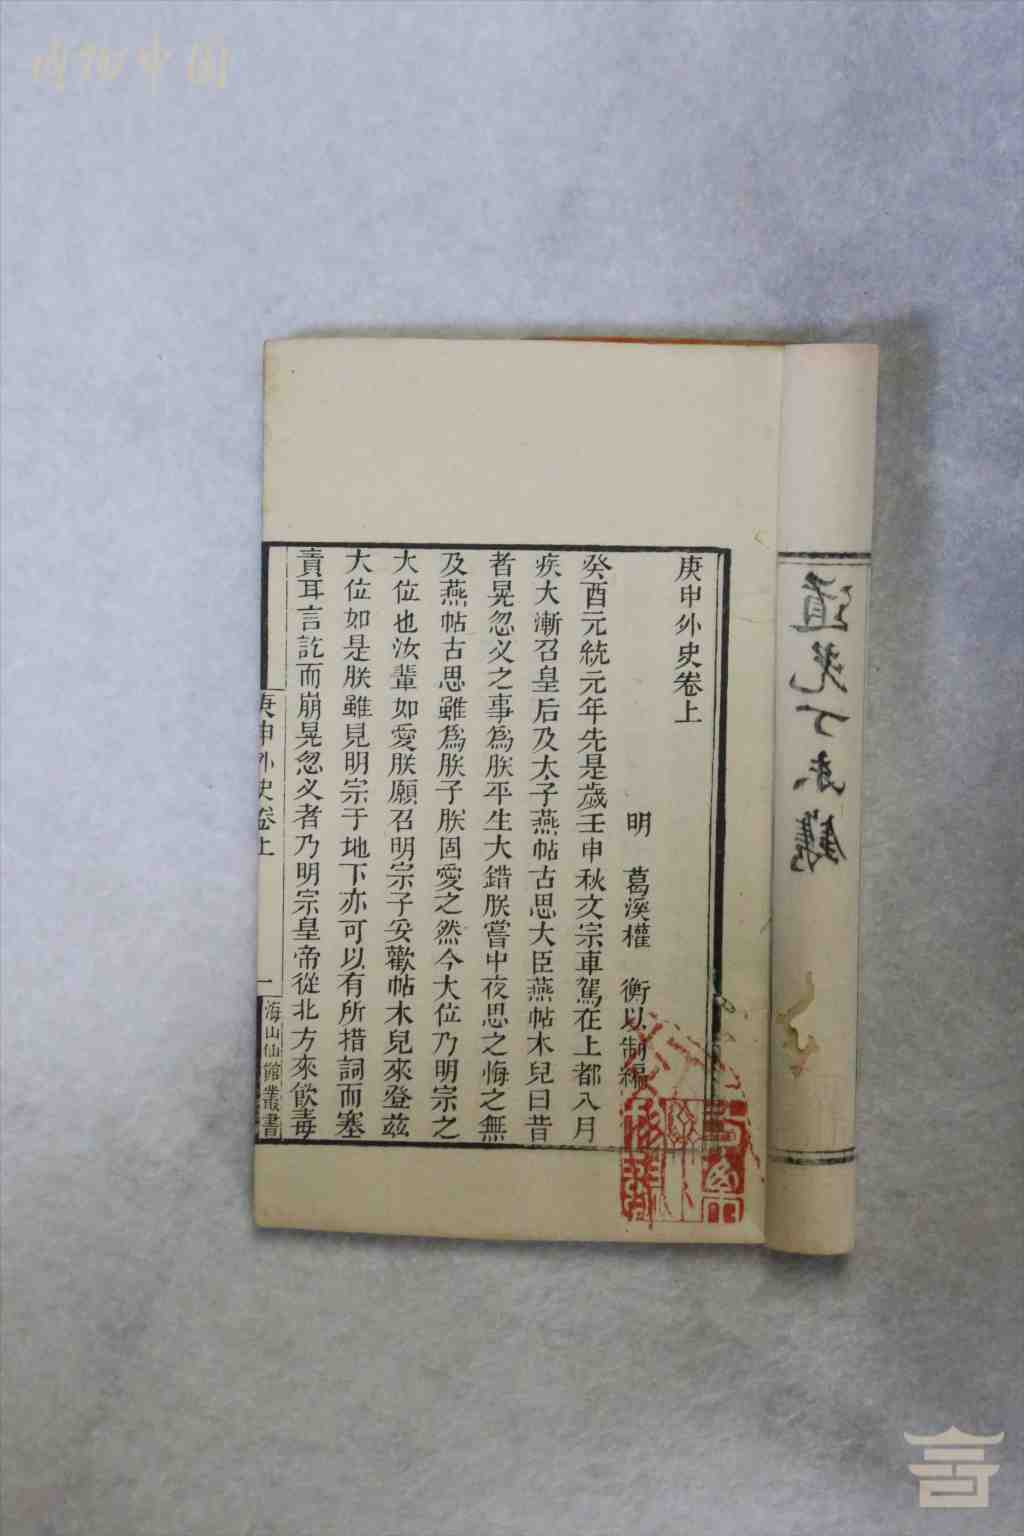 庚申外史卷上
明 葛溪權 衡以制編
癸酉元統元年先是歲壬申秋文宗車駕在上都八月
疾大漸召皇后及太子燕帖古思大臣燕帖木兒曰昔
者晃忽义之事為朕平生大錯朕嘗中夜思之悔之無
及燕帖古思雖為朕子朕固愛之然今大位乃明宗之
大位也汝輩如愛朕願召明宗子妥歡帖木兒來登茲
大位如是朕雖見明宗于地下亦可以有所措詞而塞
責耳言訖而崩晃忽义者乃明宗皇帝從北方來飲毒
庚申外史卷上
一
海山仙館叢書